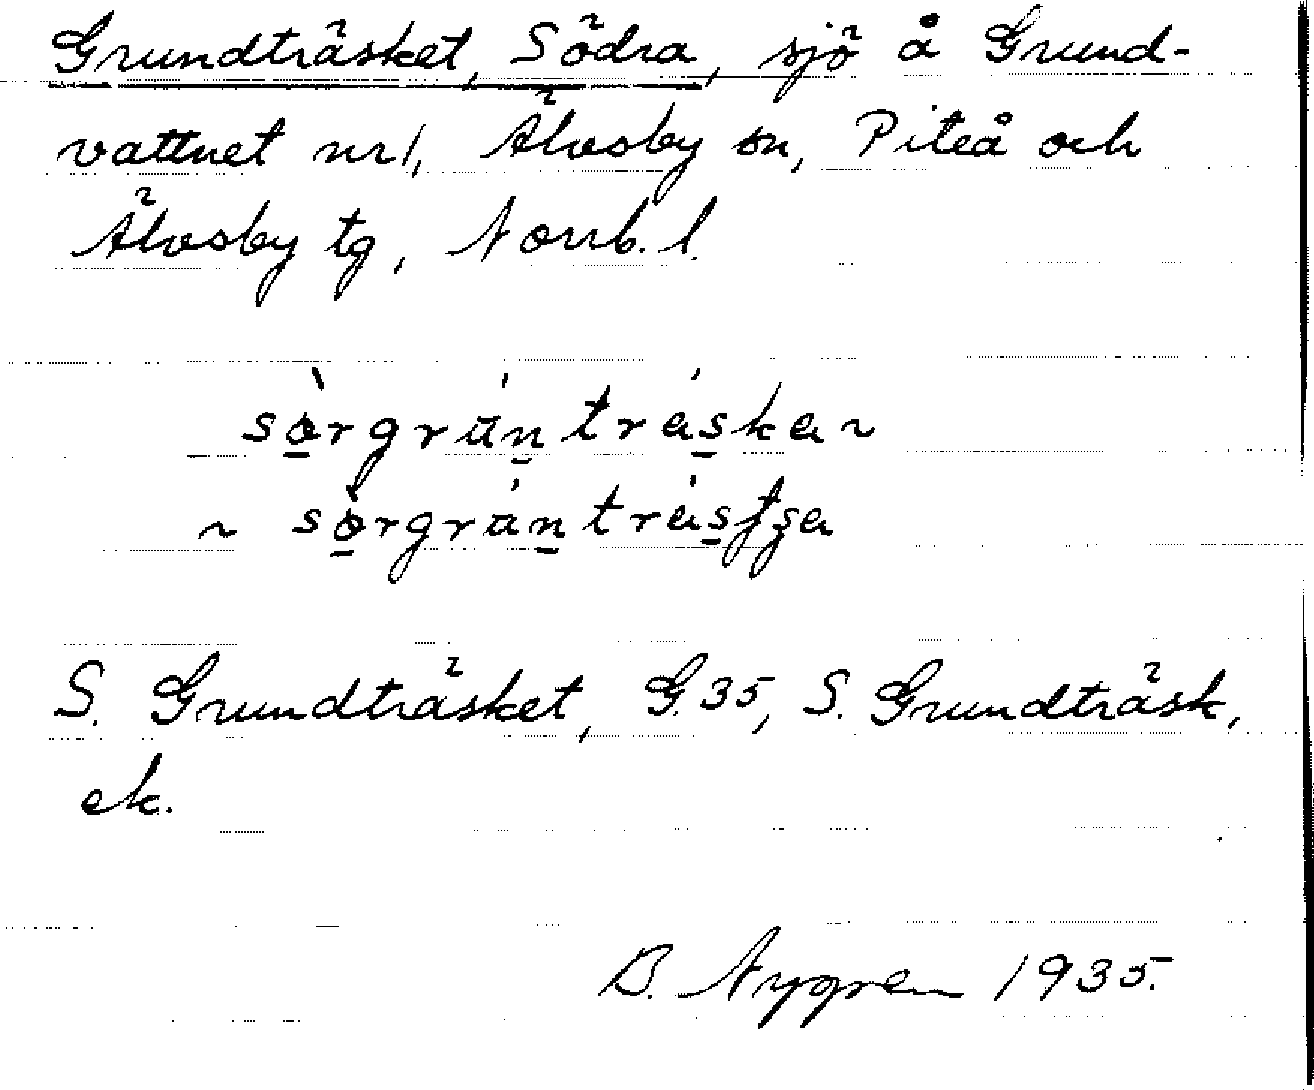 Grundträsket, Södra, sjö å Grund-
vattnet nr 1, Älvsby sn, Piteå och
Älvsby tg, Norrb. l.
sø̀rgrún̠tráska ~
~ sø̀rgrún̠trás̠tʃa
S. Grundträsket, G. 35, S. Grundträsk,
ek.
B. Nygren 1935.